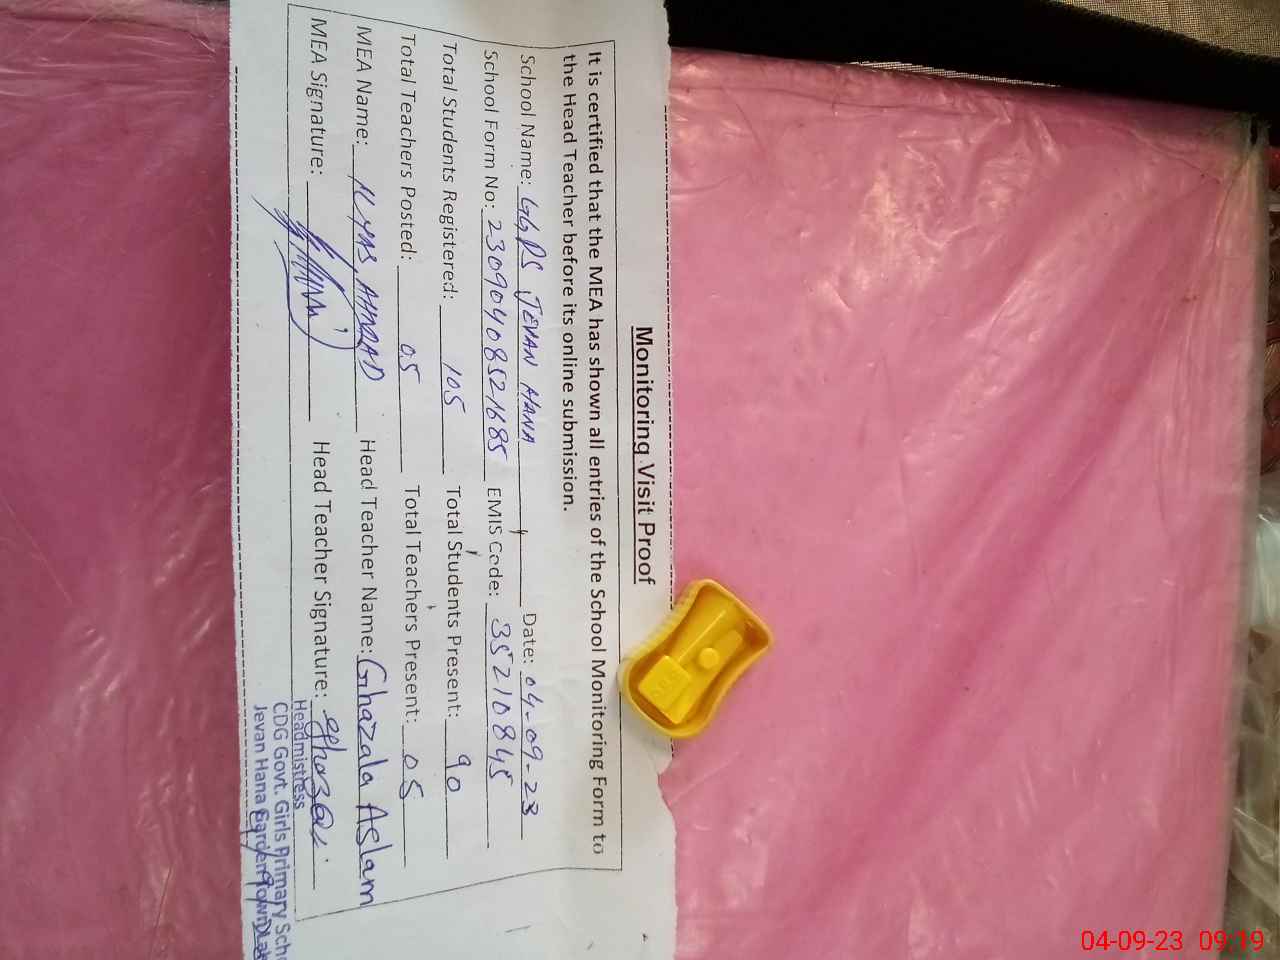 Monitoring Visit Proof
It is certified that the MEA has shown all entries of the School Monitoring Form to
the Head Teacher before its online submission.
School Name: GGPS JEVAN HANA Date: 04-09-23
School Form No: 23090408521685 EMIS Code: 35210845
Total Students Registered: 105 Total Students Present: 90
Total Teachers Posted: 05 Total Teachers Present: 05
MEA Name: ILYAS AHMAD Head Teacher Name: Ghazala Aslam
MEA Signature: Head Teacher Signature:
Headmistress
CDG Govt. Girls Primary Scho
Jevan Hana Garden Town
04-09-23 09:19